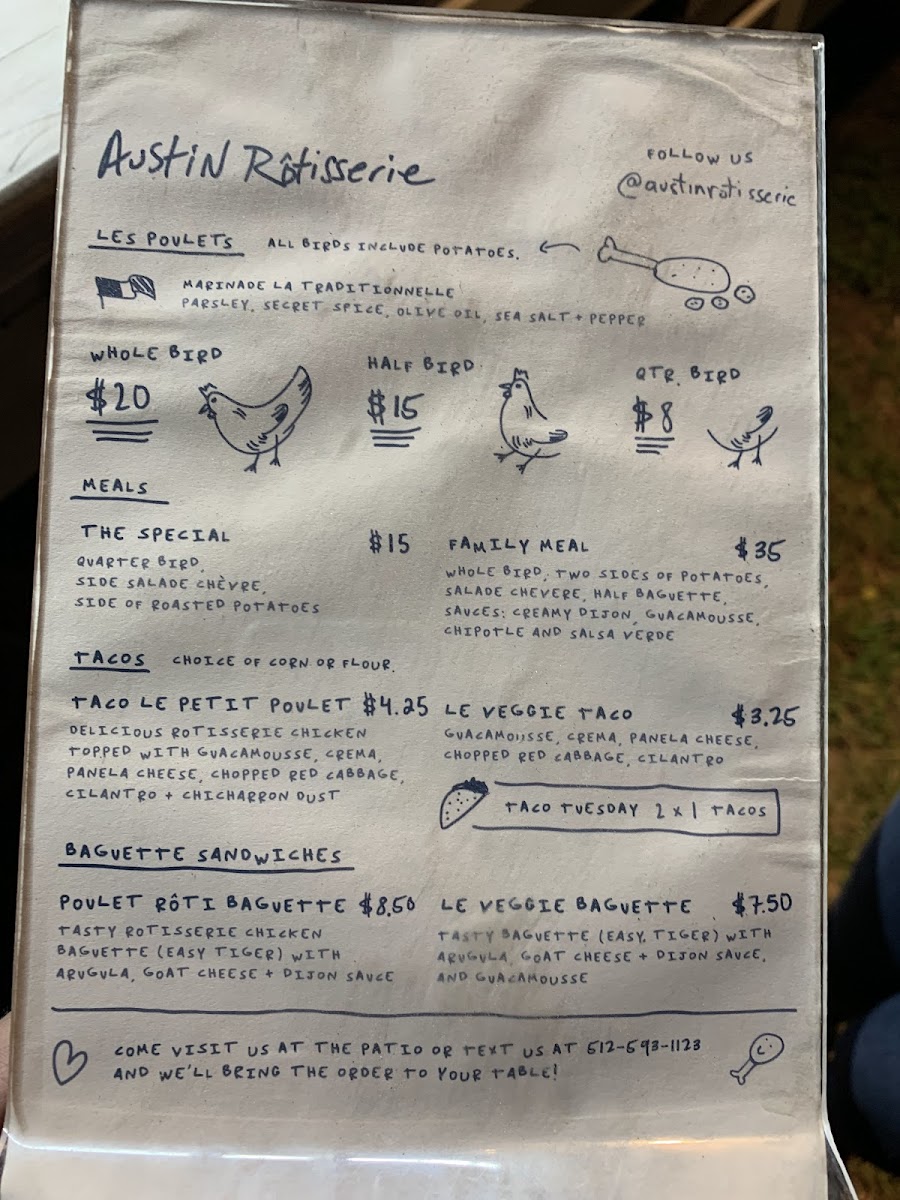 Austin Rôtisserie
FOLLOW US
@austinrotisserie
LES POULETS ALL BIRDS INCLUDE POTATOES.
MARINADE LA TRADITIONNELLE
PARSLEY, SECRET SPICE, OLIVE OIL, SEA SALT + PEPPER
WHOLE BIRD
$20
HALF BIRD
$15
QTR. BIRD
$8
MEALS
THE SPECIAL $15
QUARTER BIRD,
SIDE SALADE CHÈVRE,
SIDE OF ROASTED POTATOES
FAMILY MEAL $35
WHOLE BIRD, TWO SIDES OF POTATOES,
SALADE CHEVERE, HALF BAGUETTE,
SAUCES: CREAMY DIJON, GUACAMOUSSE,
CHIPOTLE AND SALSA VERDE
TACOS CHOICE OF CORN OR FLOUR.
TACO LE PETIT POULET $4.25
DELICIOUS ROTISSERIE CHICKEN
TOPPED WITH GUACAMOUSSE, CREMA,
PANELA CHEESE, CHOPPED RED CABBAGE,
CILANTRO + CHICHARRON DUST
LE VEGGIE TACO $3.25
GUACAMOUSSE, CREMA, PANELA CHEESE,
CHOPPED RED CABBAGE, CILANTRO
TACO TUESDAY 2 x 1 TACOS
BAGUETTE SANDWICHES
POULET RÔTI BAGUETTE $8.50
TASTY ROTISSERIE CHICKEN
BAGUETTE (EASY TIGER) WITH
ARUGULA, GOAT CHEESE + DIJON SAUCE
LE VEGGIE BAGUETTE $7.50
TASTY BAGUETTE (EASY TIGER) WITH
ARUGULA, GOAT CHEESE + DIJON SAUCE,
AND GUACAMOUSSE
COME VISIT US AT THE PATIO OR TEXT US AT 512-593-1123
AND WE'LL BRING THE ORDER TO YOUR TABLE!